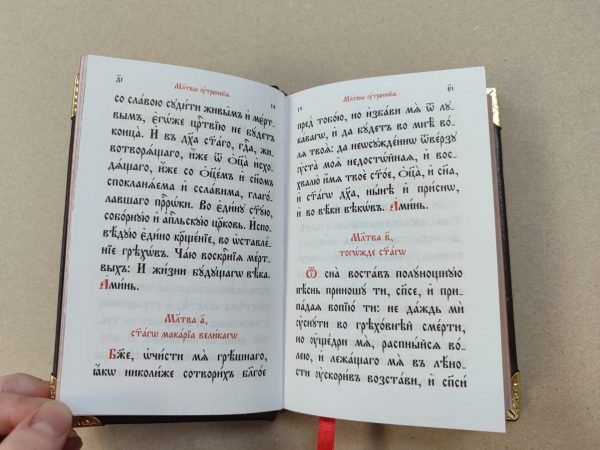 д҃і
14
Мл҃твы ᲂу҆́трєннїѧ
со сла́вою сѹди́ти живы̑мъ и҆ ме́рт-
вымъ, є҆гѡ́же цр҃твїю не бѹ́детъ
конца̀. И҆ въ дх҃а ст҃а́го, гд҇а, жи-
вотворѧ́щаго, и҆́же ѿ ѻ҆ц҃а̀ и҆схо-
дѧ́щаго, и҆́же со ѻ҆ц҃е́мъ и҆ сн҃омъ
спокланѧ́ема и҆ ссла́вима, глаго́-
лавшаго прⷪ҇рѡ́ки. Во є҆ди́нѹ ст҃ѹ́ю,
собо́рнѹю и҆ а҆пⷭ҇льскѹю цр҃ковь. И҆спо-
вѣ́дѹю є҆ди́но кр҃ще́нїе, во ѡ҆ставле́-
нїе грѣхѡ́въ. Ча́ю воскр҇нїѧ ме́рт-
выхъ: И҆ жи́зни бѹ́дѹщагѡ вѣ́ка.
А҆ми́нь.
Мл҃тва а҃,
ст҃а́гѡ мака́рїа вели́кагѡ
Бж҃е, ѡ҆чи́сти мѧ̀ грѣ́шнаго,
ꙗ҆́кѡ николи́же сотвори́хъ бл҃го́е
15
є҃і
Мл҃твы ᲂу҆́трєннїѧ
пред̾ тобо́ю, но и҆зба́ви мѧ̀ ѿ лѹ-
ка́вагѡ, и҆ да бѹ́детъ во мнѣ̀ во́-
лѧ твоѧ̀: да неѡсѹжде́ннѡ ѿве́рзѹ
ᲂу҆ста̀ моѧ̑ недостѡ́йнаѧ, и҆ вос-
хвалю̀ и҆́мѧ твоѐ ст҃о́е, ѻ҆ц҃а̀, и҆ сн҃а,
и҆ ст҃а́гѡ дх҃а, ны́нѣ и҆ при́снѡ,
и҆ во вѣ́ки вѣкѡ́въ. А҆ми́нь.
Мл҃тва в҃,
тогѡ́жде ст҃а́гѡ
Ѿ сна̀ воста́въ полѹ́нощнѹю
пѣ́снь приношѹ́ ти, сп҃се, и҆ при-
па́даѧ вопїю́ ти: не да́ждь мѝ
ᲂу҆снѹ́ти во грѣхо́внѣй сме́рти,
но ᲂу҆ще́дри мѧ̀, распны́йсѧ во́-
лею, и҆ лежа́щаго мѧ̀ въ лѣ́но-
сти ᲂу҆скори́въ возста́ви, и҆ сп҃си́